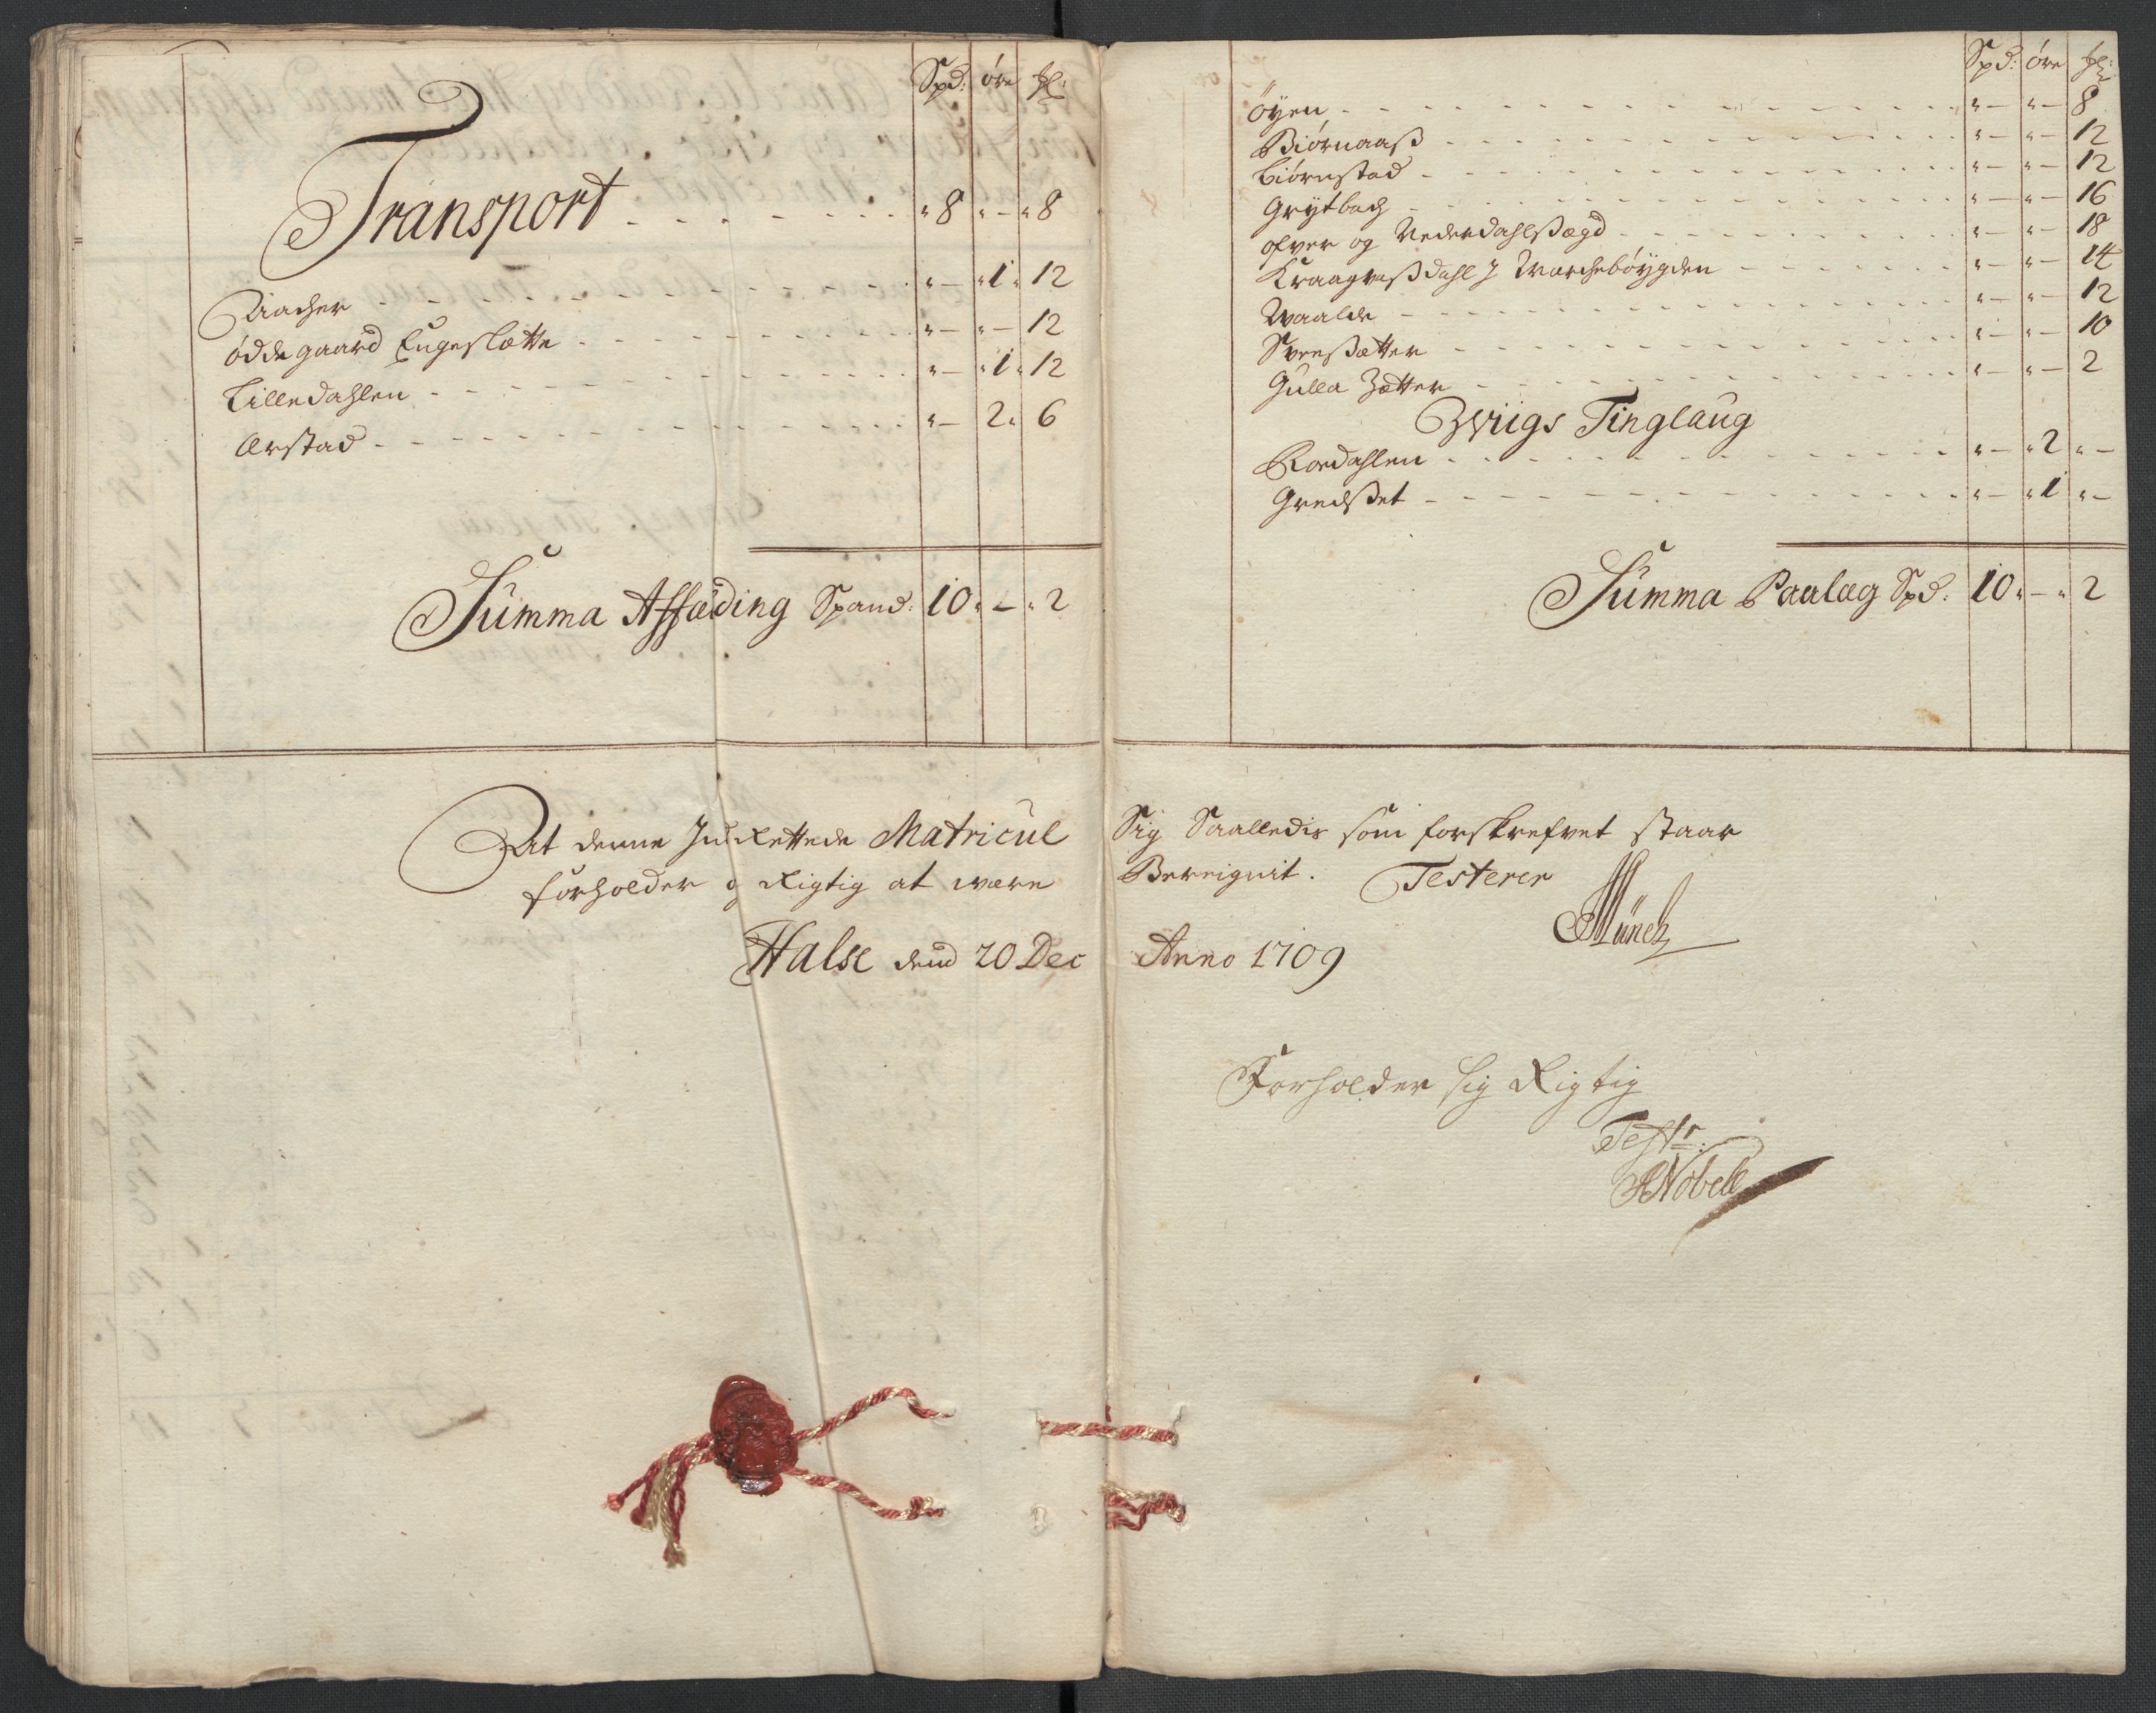 Spd: öre
Transport - - - - - - - " 8 " - " 8
Riacher - - - - - - - " - " 1 " 12
Ödde gaard Engeslætte - - - - - " - " - 12
Lilledahlen - - - - - - - " - " 1 " 12
Arstad - - - - - - - " - 2 " 6
Summa Affæding Spand: 10 " - " 2
Spd: öre
Öyen - - - - - - - " - " - 8
Biörnaaß - - - - - - - " - " - 12
Biörnstad - - - - - - - " - " - 12
Grytbach - - - - - - - " - " - 16
ofver og Nederdahlßægd - - - - - " - " - 18
Kraagneßdahl J Warchebøygden - - - - " - " - 14
Waalde - - - - - - - " - " - 12
Svenßætter - - - - - - - " - " - 10
Gulla Zætter - - - - - - - " - " - 2
Zwiigs Tinglaug
Roedahlen - - - - - - - " - " 2 " -
Gredßet - - - - - - - " - " 1 " -
Summa Paalæg Spd: 10 " - " 2
At denne Indrettede Matricul Sig Saalledis som forskrefvet staar
forholder og Rigtig at være Bereignit. Testerer
Münch
Halse dend 20 Dec Anno 1709
Forholder sig Rigtig
Testr:
Nobell